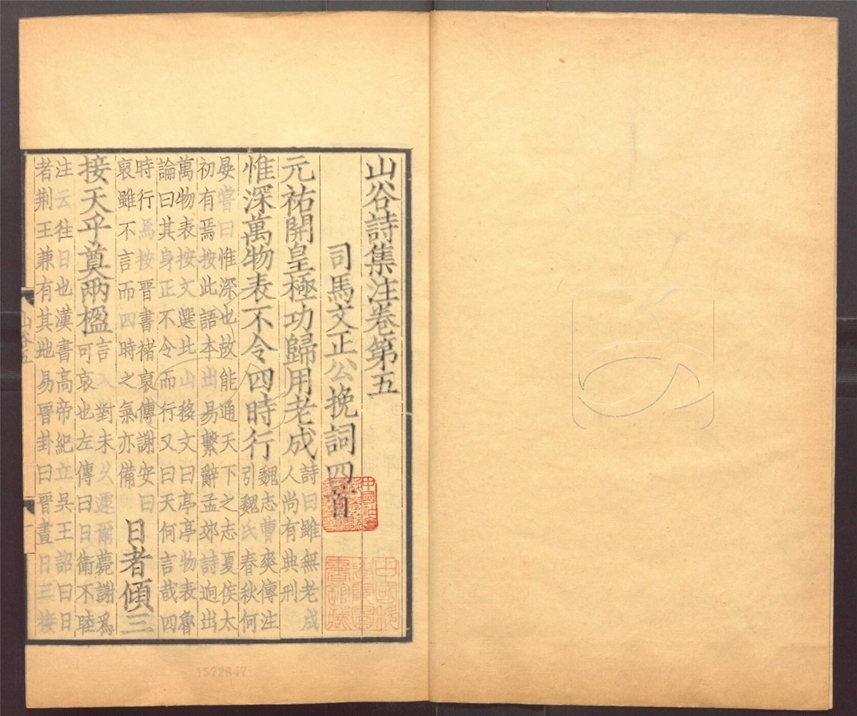 山谷詩集注卷第五
司馬文正公挽詞四首
元祐開皇極功歸用老成
詩曰雖無老成
人尚有典刑
惟深萬物表不令四時行
魏志曹爽傳注
引魏氏春秋何
晏嘗曰惟深也故能通天下之志夏侯太
初有焉按此語本出易繫辭孟郊詩迥出
萬物表按文選北山移文曰亭亭物表魯
論曰其身正不令而行又曰天何言哉四
時行焉按晉書褚裒傳謝安曰
裒雖不言而四時之氣亦備
日者傾三
接天乎奠兩楹
言入對未久遽爾薨謝爲
可哀也左傳曰日衛不睦
注云往日也漢書高帝紀立吳王詔曰日
者荆王兼有其地易晉卦曰晉晝日三接
山谷五
1572847